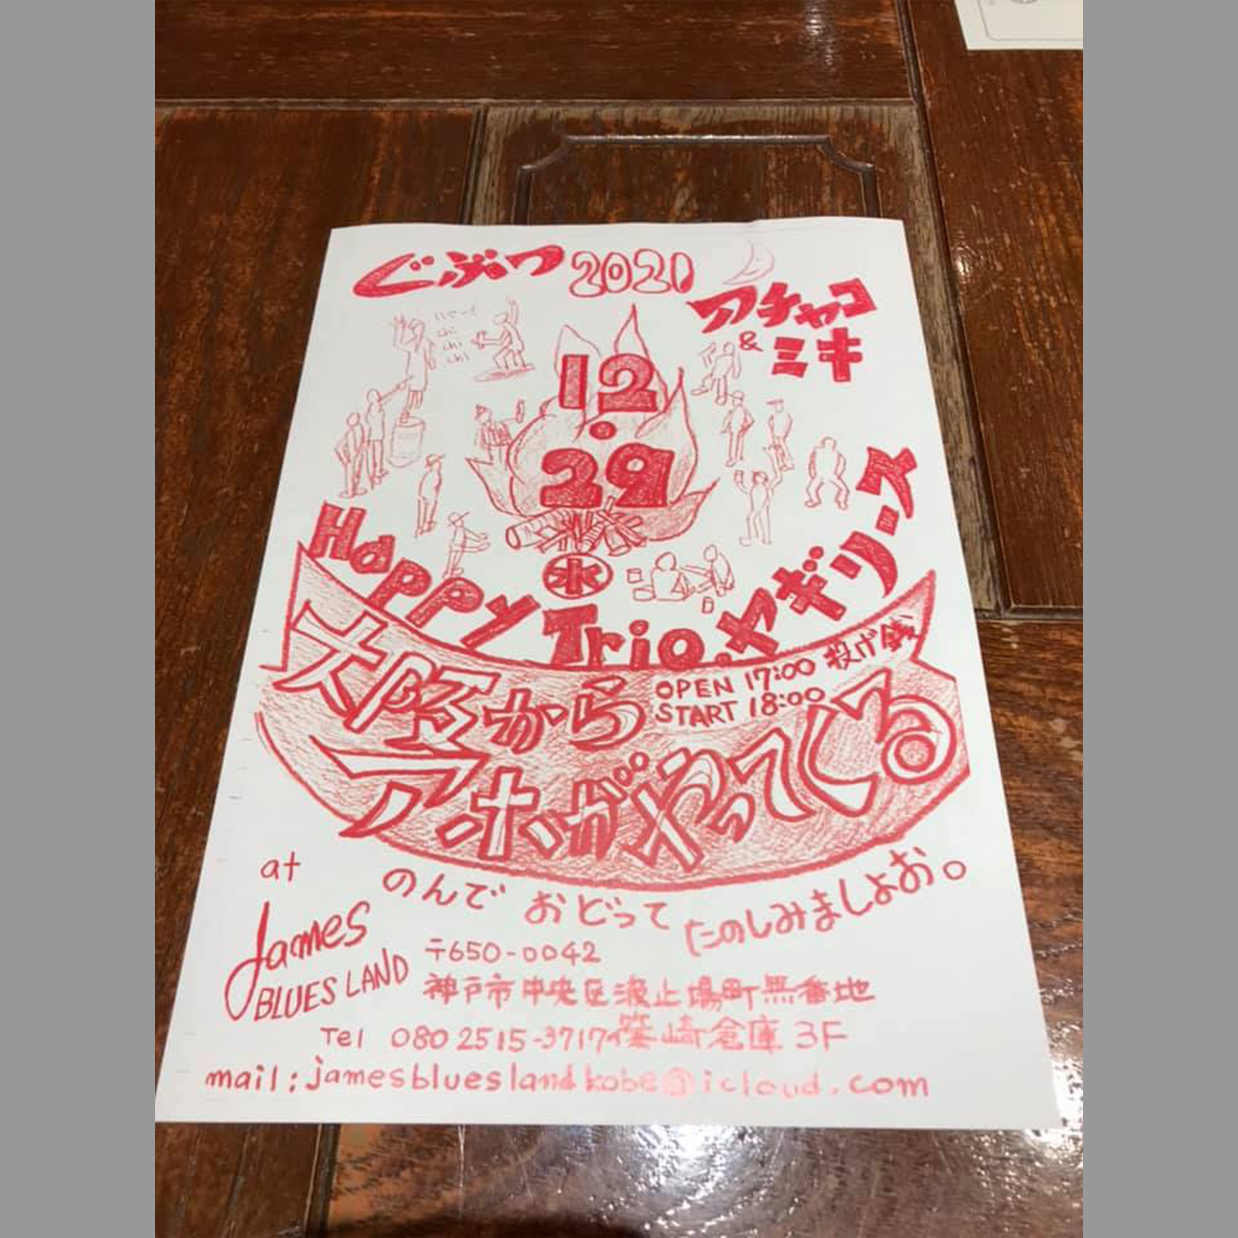 ぐぶつ 2021
アチャコ
& ミキ
ハァーイ
chi
chi
chi
12
・
29
水
Happy Trio. ヤギリース
大阪から
OPEN 17:00 投げ銭
START 18:00
アホがやってくる
のんで おどって たのしみましょお。
at
James
BLUES LAND
〒650-0042
神戸市中央区波止場町無番地
Tel 080 2515-3717 篠崎倉庫 3F
mail:jamesblueslandkobe@icloud.com